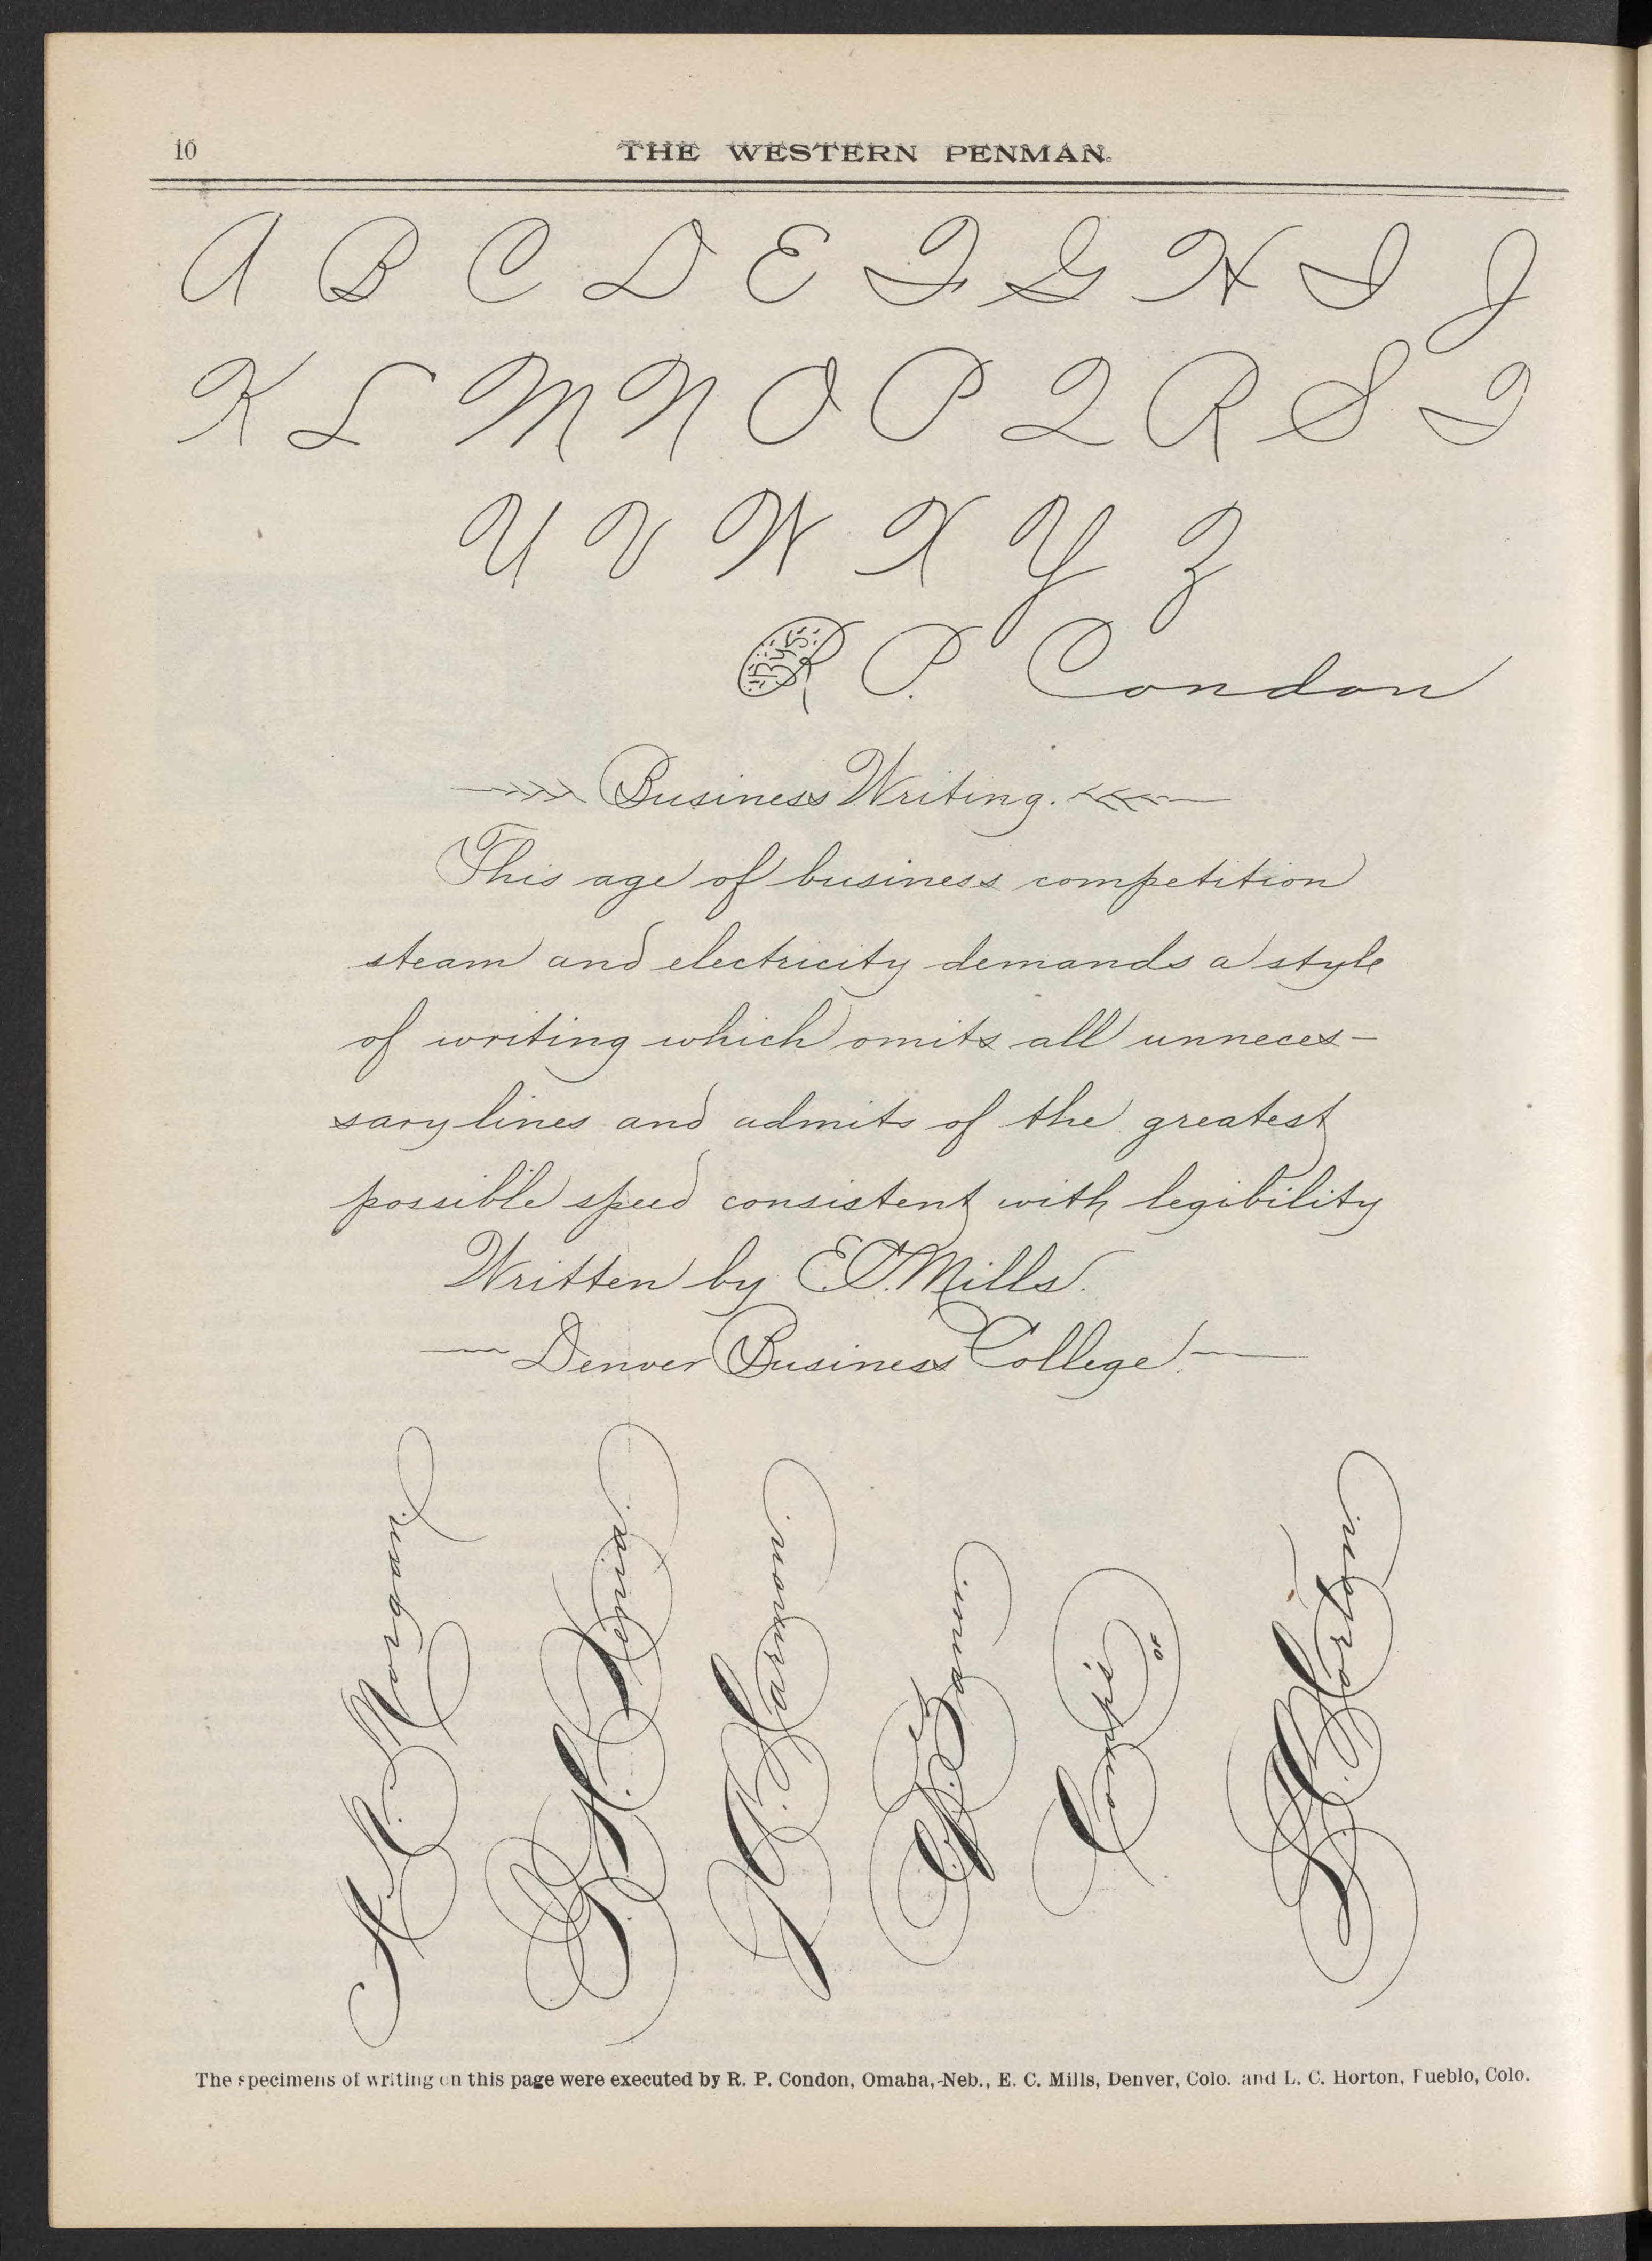 10
THE WESTERN PENMAN.
A B C D E F G H I J
K L M N O P Q R S T
U V W X Y Z
BY R P. Condon
Business Writing.
This age of business competition
steam and electricity demands a style
of writing which omits all unneces-
sary lines and admits of the greatest
possible speed consistent with legibility
Written by E.C. Mills.
Denver Business College.
The specimens of writing on this page were executed by R. P. Condon, Omaha,-Neb., E. C. Mills, Denver, Colo. and L. C. Horton, Pueblo, Colo.